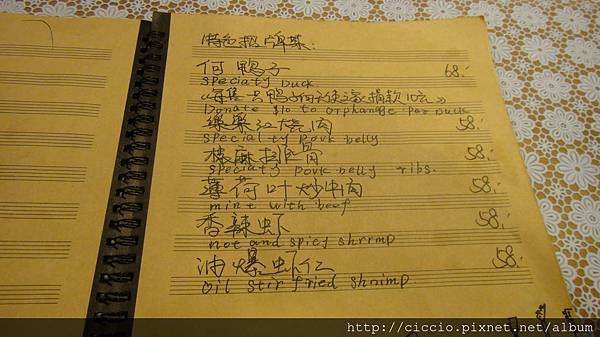 特色招牌菜:
何鸭子 68.-
specialty Duck.
《每售一只鸭子向天使之家捐款10元》
Donate $10 to orphange per Duck
樂樂红烧肉 58.-
specialty pork belly
椒麻排骨 58.-
specialty pork belly ribs.
薄荷叶炒牛肉 58.-
mint with beef
香辣虾 58.-
hot and spicy shrimp
油爆虾仁 58.-
oil stir fried shrimp
http://ciccio.pixnet.net/album